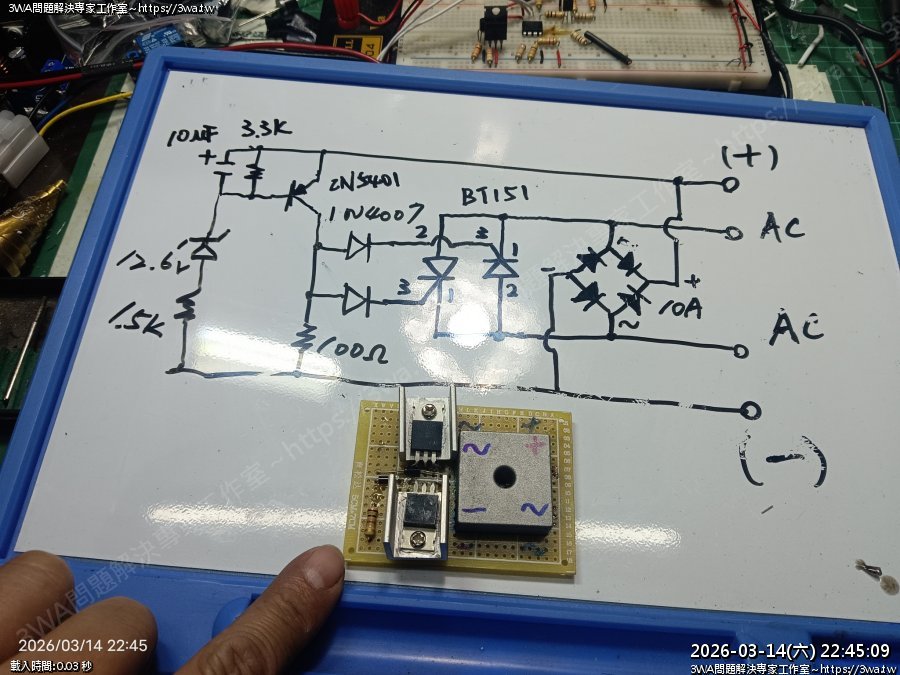 3WA問題解決專家工作室~https://3wa.tw
10uF
3.3K
(+)
+
2N5401
BT151
1N4007
AC
2
3
1
~
12.6V
-
+
3
1
2
10A
1.5K
~
AC
100Ω
(-)
~
+
-
~
2026/03/14 22:45
載入時間:0.03 秒
2026-03-14(六) 22:45:09
3WA問題解決專家工作室~https://3wa.tw